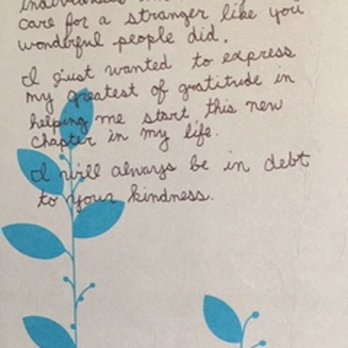 care for a stranger like you
wonderful people did.
I just wanted to express
my greatest of gratitude in
helping me start this new
chapter in my life.
I will always be in debt
to your kindness.